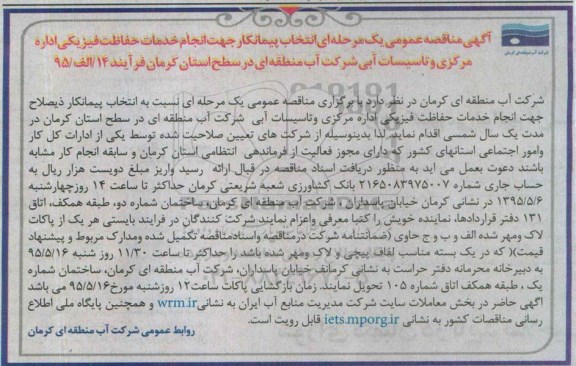 آگهی مناقصه عمومی یک مرحله ای انتخاب پیمانکار جهت انجام خدمات حفاظت فیزیکی اداره
مرکزی و تاسیسات آبی شرکت آب منطقه ای در سطح استان کرمان فرآیند ۱۴/الف/۹۵
شرکت آب منطقه ای کرمان
شرکت آب منطقه ای کرمان در نظر دارد با برگزاری مناقصه عمومی یک مرحله ای نسبت به انتخاب پیمانکار ذیصلاح
جهت انجام خدمات حفاظت فیزیکی اداره مرکزی وتاسیسات آبی شرکت آب منطقه ای در سطح استان کرمان در
مدت یک سال شمسی اقدام نماید. لذا بدینوسیله از شرکت های تعیین صلاحیت شده توسط یکی از ادارات کل کار
وامور اجتماعی استانهای کشور که دارای مجوز فعالیت از فرماندهی انتظامی استان کرمان و سابقه انجام کار مشابه
باشند دعوت بعمل می اید به منظور دریافت اسناد مناقصه در قبال ارائه رسید واریز مبلغ دویست هزار ریال به
حساب جاری شماره ۲۱۶۵۰۸۳۹۷۵۰۰۷ بانک کشاورزی شعبه شریعتی کرمان حداکثر تا ساعت ۱۴ روزچهارشنبه
۱۳۹۵/۵/۶ در نشانی کرمان خیابان پاسداران ، شرکت آب منطقه ای کرمان، ساختمان شماره دو، طبقه همکف، اتاق
۱۳۱ دفتر قراردادها، نماینده خویش را کتبا معرفی واعزام نمایند.شرکت کنندگان در فرایند بایستی هر یک از پاکات
لاک ومهر شده الف و ب و ج حاوی (ضمانتنامه شرکت درمناقصه واسنادمناقصه تکمیل شده ومدارک مربوط و پیشنهاد
قیمت)( که در یک بسته مناسب لفاف پیچی و لاک ومهر شده باشد را حداکثر تا ساعت ۱۱/۳۰ روز شنبه ۹۵/۵/۱۶
به دبیرخانه محرمانه دفتر حراست به نشانی کرمانف خیابان پاسداران، شرکت آب منطقه ای کرمان، ساختمان شماره
یک ، طبقه همکف اتاق شماره ۱۰۵ تحویل نمایند. زمان بازگشایی پاکات ساعت۱۲ روزشنبه مورخ۹۵/۵/۱۶ می باشد
آگهی حاضر در بخش معاملات سایت شرکت مدیریت منابع آب ایران به نشانی wrm.ir و همچنین پایگاه ملی اطلاع
رسانی مناقصات کشور به نشانی iets.mporg.ir قابل رویت است.
روابط عمومی شرکت آب منطقه ای کرمان